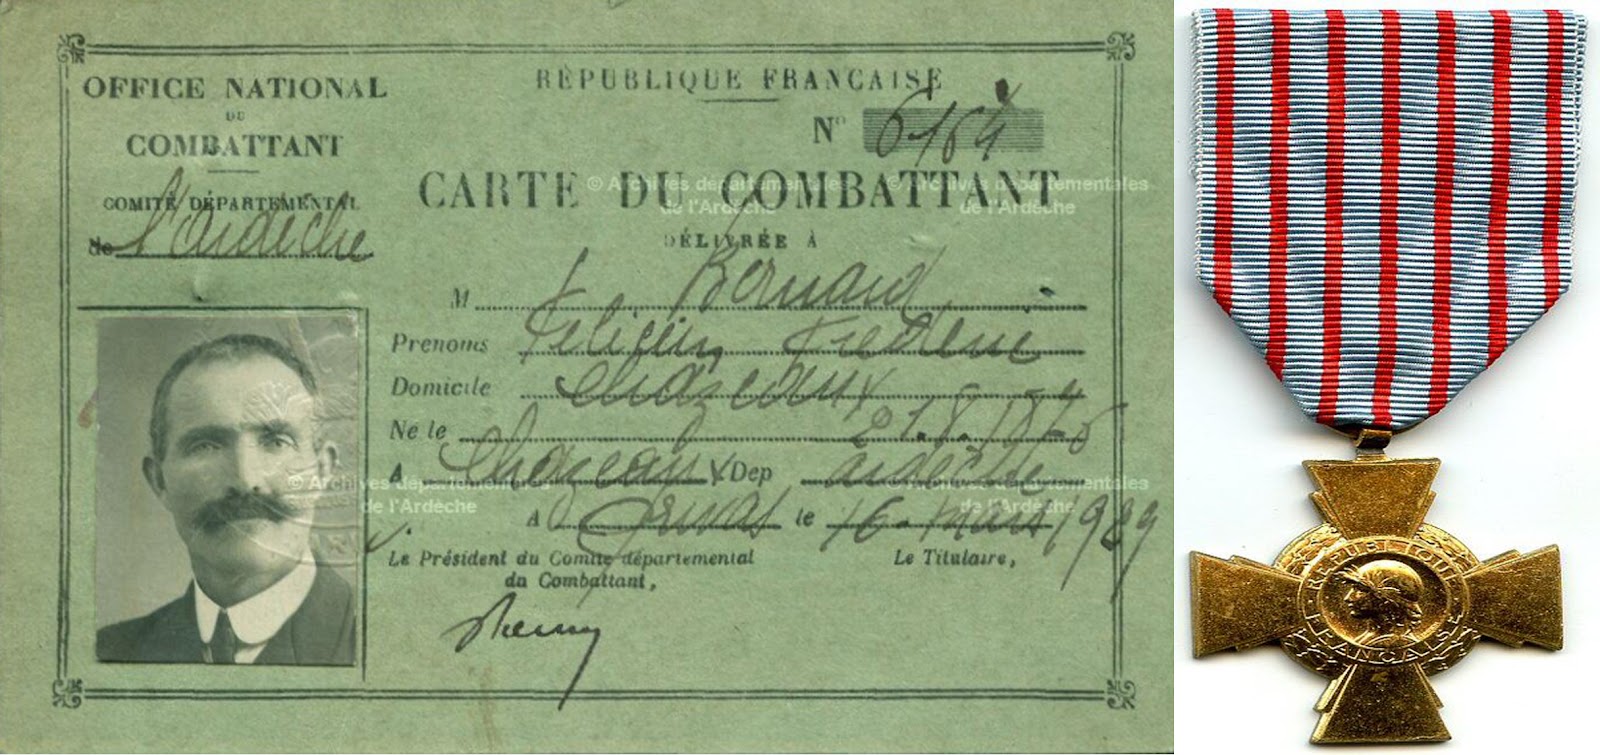 OFFICE NATIONAL
DU
COMBATTANT
COMITÉ DÉPARTEMENTAL
de l'Ardèche
RÉPUBLIQUE FRANÇAISE
N° 6164
CARTE DU COMBATTANT
DÉLIVRÉE À
M Bernard
Prenoms Félicien Frederic
Domicile Chazeaux
Né le 21.8.187
A Chazeaux Dep ardèche
A Privas le 16 mars 1929
Le Président du Comité départemental
du Combattant,
Le Titulaire,
© Archives départementales
de l'Ardèche
© Archives départementales
de l'Ardèche
© Archives départementales
de l'Ardèche
© Archives départementales
de l'Ardèche
RÉPUBLIQUE
FRANÇAISE